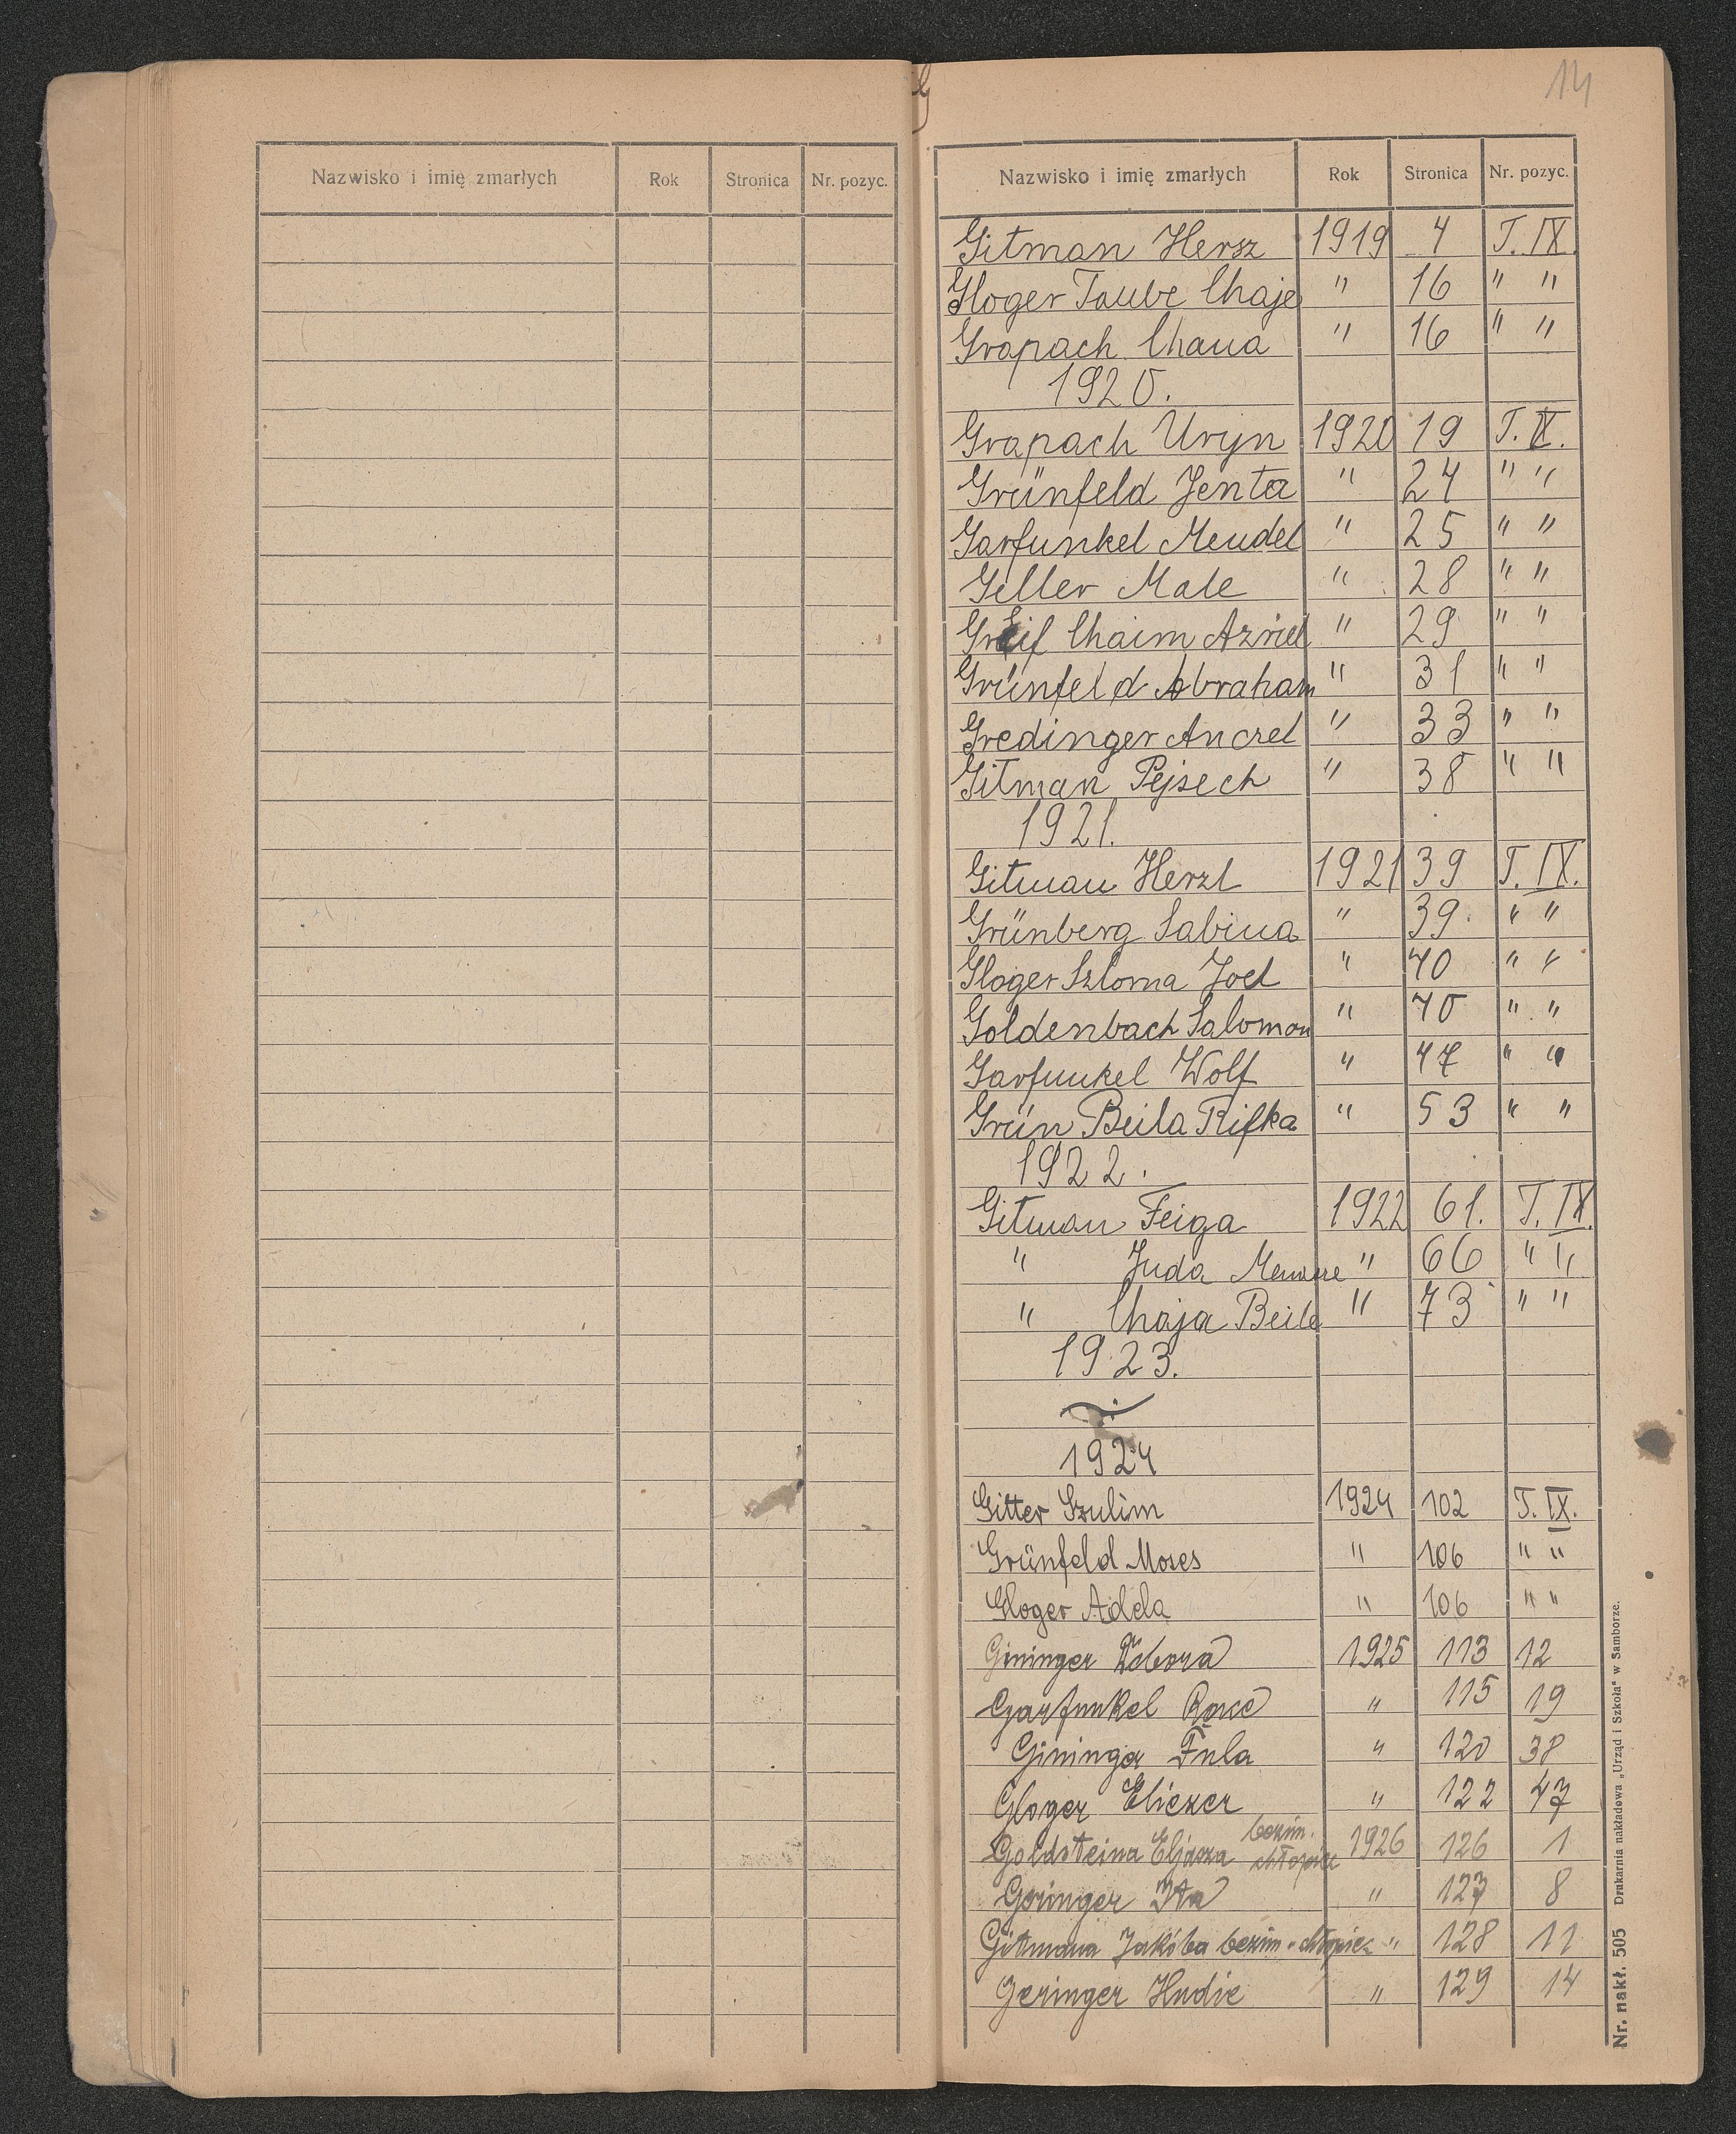 14
Nazwisko i imię zmarłych Rok Stronica Nr. pozyc.
Nazwisko i imię zmarłych Rok Stronica Nr. pozyc.
Gitman Hersz 1919 4 T. IX.
Gloger Taube Chaje " 16 " "
Grapach Chaua " 16 " "
1920.
Grapach Uryn 1920 19 T. IX.
Grünfeld Jenta " 24 " "
Garfunkel Mendel " 25 " "
Geller Male " 28 " "
Greif Chaim Azriel " 29 " "
Grünfeld Abraham " 31 " "
Gredinger Anczel " 33 " "
Gitman Pejsech " 38 " "
1921.
Gitman Herzl 1921 39 T. IX.
Grünberg Sabina " 39. " "
Gloger Szloma Joel " 40 " "
Goldenbach Salomon " 40 " "
Garfunkel Wolf " 47 " "
Grün Beila Rifka " 53 " "
1922.
Gitman Feiga 1922 61. T. IX.
" Juda " 66 " "
" Chaja Beile " 73 " "
1923.
1924
Gitter Szulim 1924 102 T. IX.
Grünfeld Moses " 106 " "
Gloger Adela " 106 " "
Gininger Debora 1925 113 12
Garfunkel " 115 19
Gininger " 120 38
Gloger Eliezer " 122 47
Goldsteina Eljasza bezim. chłopiec 1926 126 1
Geringer Ita " 127 8
Gitmana Jakóba bezim. chłopiec " 128 11
Geringer Hudie " 129 14
Nr. nakł. 505 Drukarnia nakładowa „Urząd i Szkoła" w Samborze.